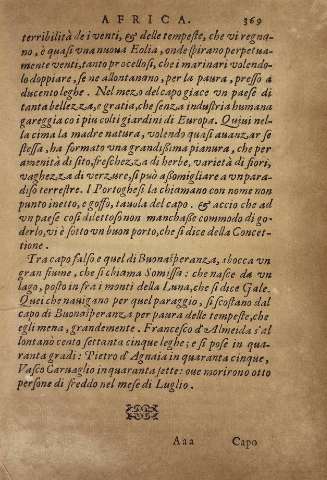 AFRICA. 369
terribilità de i venti, & delle tempeste, che vi regna-
no, è quasi vna nuoua Eolia, onde spirano perpetua-
mente venti, tanto procellosi, che i marinari volendo-
lo doppiare, se ne allontanano, per la paura, presso a
ducento leghe. Nel mezo del capo giace vn paese di
tanta bellezza, e gratia, che senza industria humana
gareggia co i piu colti giardini di Europa. Quiui nel-
la cima la madre natura, volendo quasi auanzar se
stessa, ha formato vna grandissima pianura, che per
amenità di sito, freschezza di herbe, varietà di fiori,
vaghezza di verzure, si può assomigliare a vn para-
diso terrestre. I Portoghesi la chiamano con nome non
punto inetto, e goffo, tauola del capo. & accio che ad
vn paese così dilettoso non manchasse commodo di go-
derlo, vi è sotto vn buon porto, che si dice della Concet-
tione.
Tra capo falso e quel di Buonasperanza, sbocca vn
gran fiume, che si chiama Somissa: che nasce da vn
lago, posto in fra i monti della Luna, che si dice Gale.
Quei che nauigano per quel paraggio, si scostano dal
capo di Buonasperanza per paura delle tempeste, che
egli mena, grandemente. Francesco d'Almeida s'al
lontanò cento settanta cinque leghe; e si pose in qua-
ranta gradi: Pietro d'Agnaia in quaranta cinque,
Vasco Caruaglio in quaranta sette: oue morirono otto
persone di freddo nel mese di Luglio.
Aaa Capo